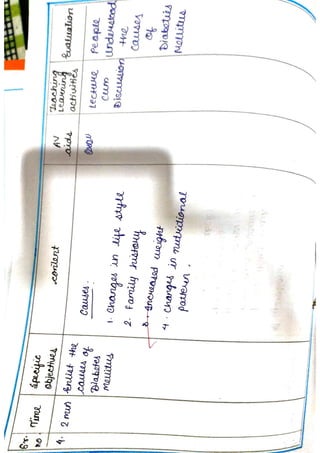 Sr. no.
Time
Specific Objectives
content
AV aids
Teaching Learning activities
Evaluation
4.
2 min
Enlist the
causes of
Diabetes
Mellitus
Causes:
1. Changes in life style
2. Family history
3. Increased weight
4. Changes in nutritional
pattern.
Lecture
cum
Discussion
People
understood
the
causes
of
Diabetes
Mellitus